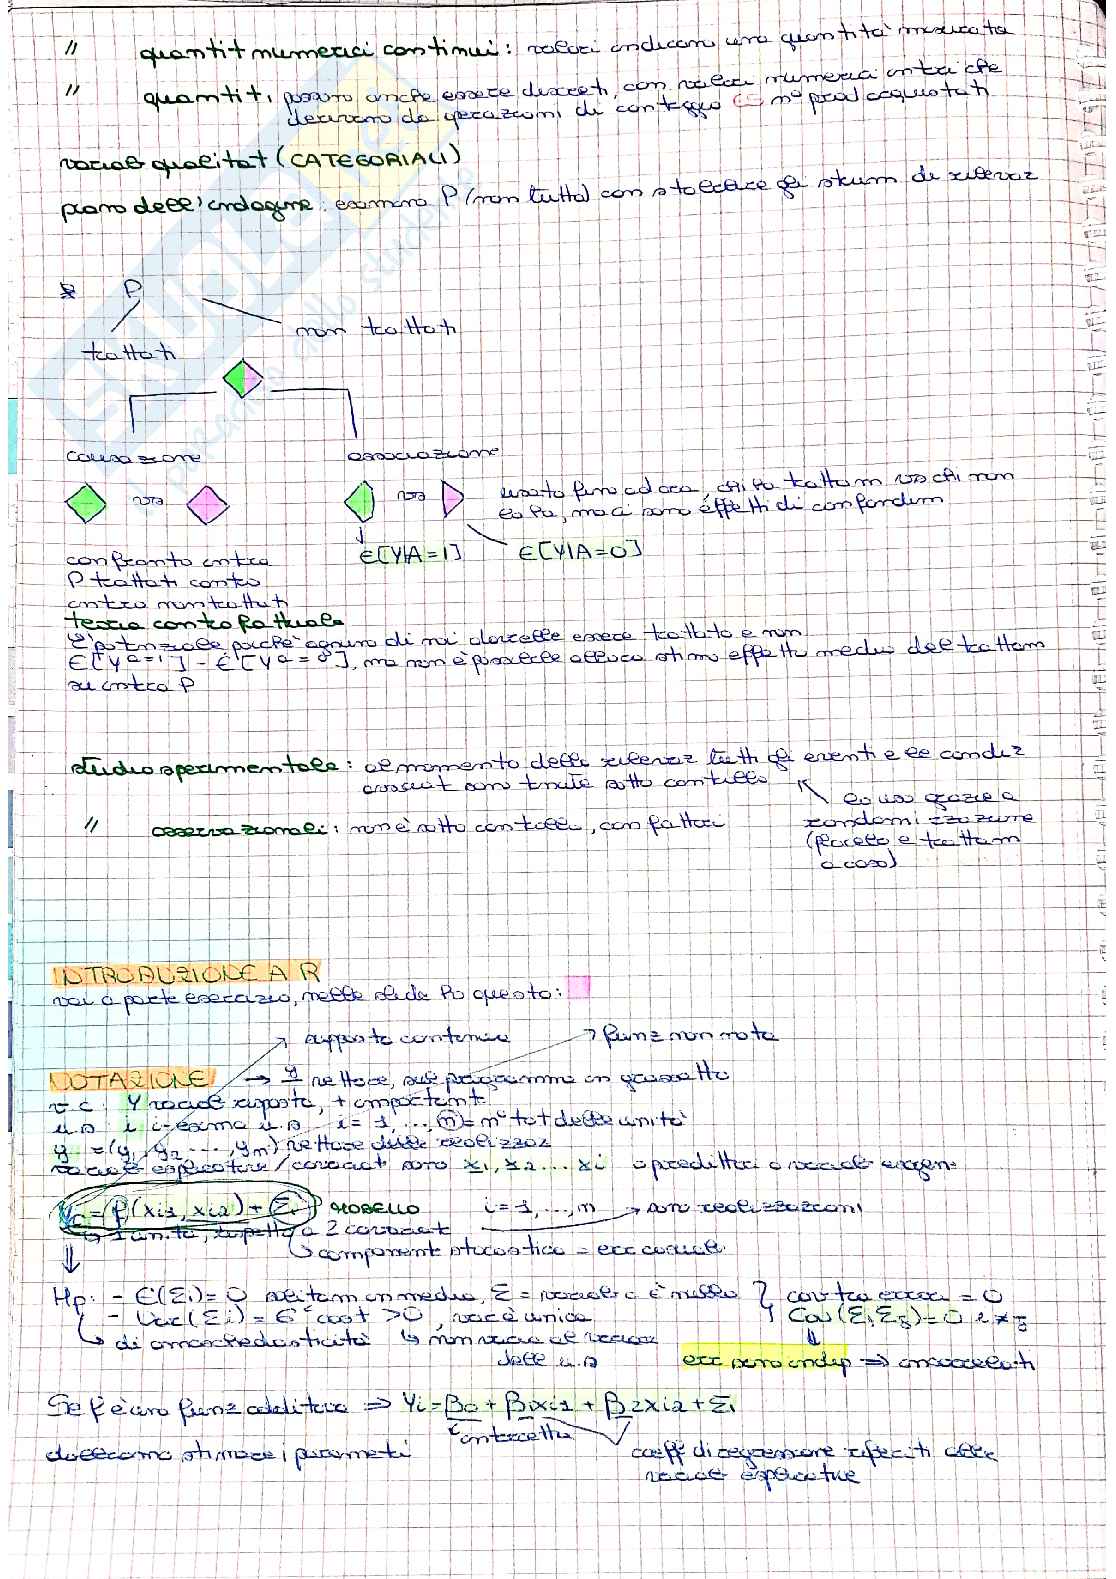 " quantit numerici continui: valori indicano una quantità misurata
" quantit, possono anche essere discreti, con valori numerici interi che
derivano da operazioni di conteggio n° prod acquistati
variab qualitat (CATEGORIALI)
piano dell'indagine: esamino P (non tutta) con stabilire gli strum di rilevaz
P
non trattati
trattati
causazione associazione
vs vs usato fino ad ora, chi fa trattam vs chi non
lo fa, ma ci sono effetti di confondim
E[Y|A=1] E[Y|A=0]
confronto intera
P trattati contro
intera non trattati
teoria controfattuale
è potenziale perché ognuno di noi dovrebbe essere trattato e non
E[Y a=1] - E[Y a=0], ma non è possibile allora stimo effetto medio del trattam
su intera P
studio sperimentale: al momento della rilevaz tutti gli eventi e le condiz
circost sono tenute sotto controllo
lo uso grazie a
" osservazionali: non è sotto controllo, con fattori randomizzazione
(placebo e trattam
a caso)
INTRODUZIONE A R
vai a parte esercizio, nelle slide ho questo:
risposta continua funz non nota
NOTAZIONE → y vettore, sul programma in grassetto
v.c. Y variab risposta, + important
u.s i i-esima u.s i=1,...,n = n° tot delle unità
y =(y1, y2 ..., yn) vettore delle realizzaz
variab esplicative/covariat sono x1, x2 ... xi o predittori o variab esogen
Yi = f(xi1, xi2) + Σi MODELLO i=1,...,n → sono realizzazioni
1 unità, rispetto a 2 covariat
component stocastica = err casual
Hp: - E(Σi)=0 nullo
- Var(Σi) = σ² cost >0, var è unica Cov(Σi,Σj)=0 i≠j
di omoschedasticità non varia al variare
delle u.s err sono indip ⇒ incorrelati
Se f è una funz additiva ⇒ Yi=β0 + β1xi1 + β2xi2 + Σi
intercetta
dobbiamo stimare i parametri coeff di regressione riferiti alle
variab esplicative